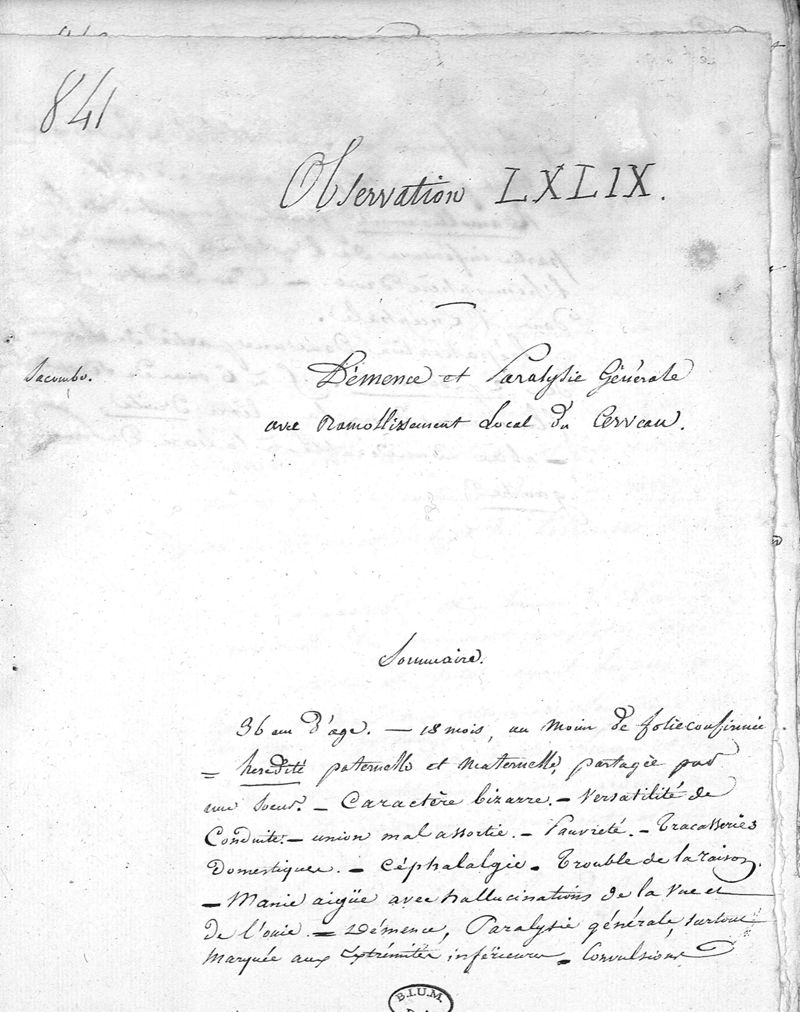 841
Observation LXLIX.
Jacombe.
Démence et Paralysie Générale
avec Ramollissement Local du Cerveau.
Sommaire.
36 ans d'age. — 18 mois, au moins de folie confirmée.
= heredité paternelle et maternelle, partagée par
une Soeur. — Caractère bizarre. — Versatilité de
Conduite. — union mal assortie. — Pauvreté. — Tracasseries
Domestiques. — Céphalalgie. — Trouble de la raison.
— Manie aigüe avec hallucinations de la vue et
de l'ouie. = Démence, Paralysie générale, surtout
Marquée aux Extrémités inférieures. — Convulsions
B.I.U.M.